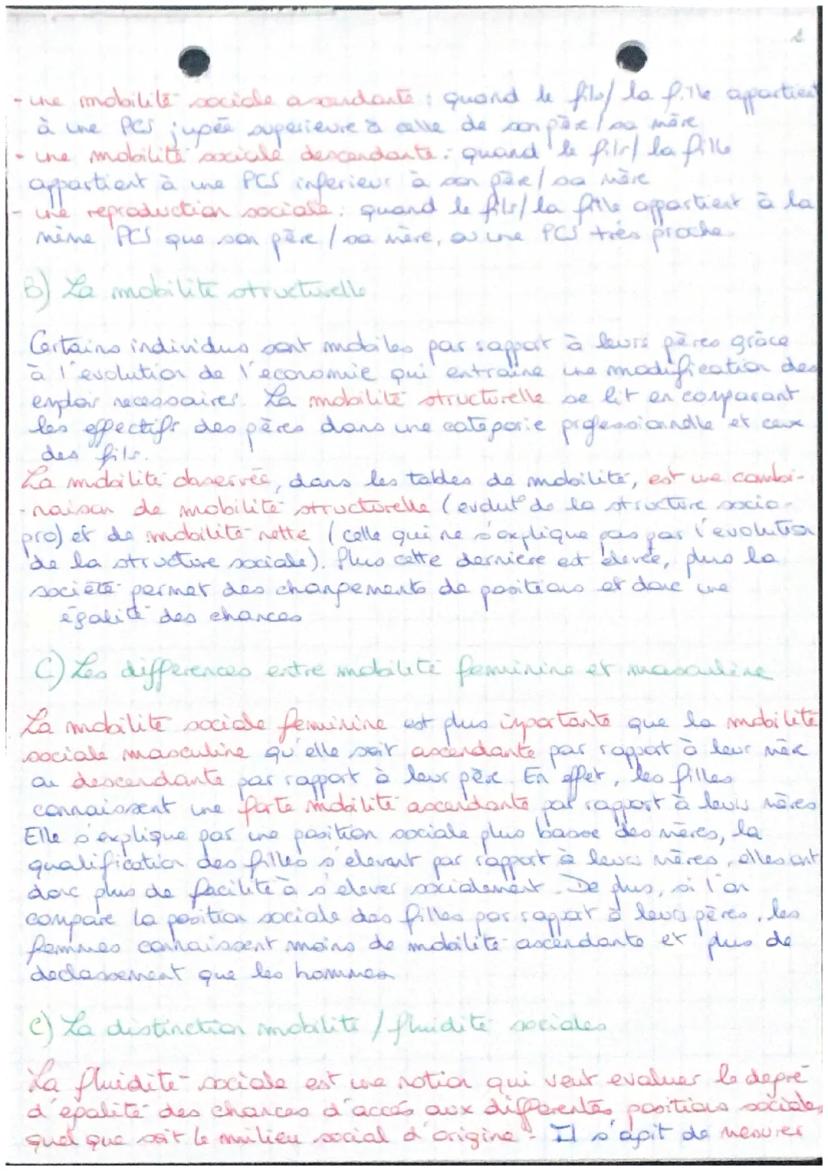 - une mobilité sociale ascendante : quand le fils/ la fille appartient
à une PCS jugée supérieure à celle de son père / sa mère
- une mobilité sociale descendante : quand le fils/ la fille
appartient à une PCS inferieur à son père / sa mère
- une reproduction sociale : quand le fils/ la fille appartient à la
même PCS que son père / sa mère, ou une PCS très proche
B) La mobilité structurelle
Certains individus sont mobiles par rapport à leurs pères grâce
à l'évolution de l'économie qui entraine une modification des
emplois necessaires. La mobilité structurelle se lit en comparant
les effectifs des pères dans une catégorie professionnelle et ceux
des fils.
La mobilité observée, dans les tables de mobilité, est une combi-
-naison de mobilité structurelle (evolut° de la structure socio-
pro) et de mobilité nette (celle qui ne s'explique pas par l'évolution
de la structure sociale). Plus cette dernière est élevée, plus la
société permet des changements de positions et donc une
égalité des chances
C) Les différences entre mobilité féminine et masculine
La mobilité sociale féminine est plus importante que la mobilité
sociale masculine qu'elle soit ascendante par rapport à leur mère
ou descendante par rapport à leur père. En effet, les filles
connaissent une forte mobilité ascendante par rapport à leurs mères
Elle s'explique par une position sociale plus basse des mères, la
qualification des filles s'élevant par rapport à leurs mères, elles ont
donc plus de facilité à s'élever socialement. De plus, si l'on
compare la position sociale des filles par rapport à leurs pères, les
femmes connaissent moins de mobilité ascendante et plus de
déclassement que les hommes
C) La distinction mobilité / fluidité sociales
La fluidité sociale est une notion qui veut evaluer le degré
d'égalité des chances d'accés aux différentes positions sociales,
quel que soit le milieu social d'origine. Il s'agit de mesurer